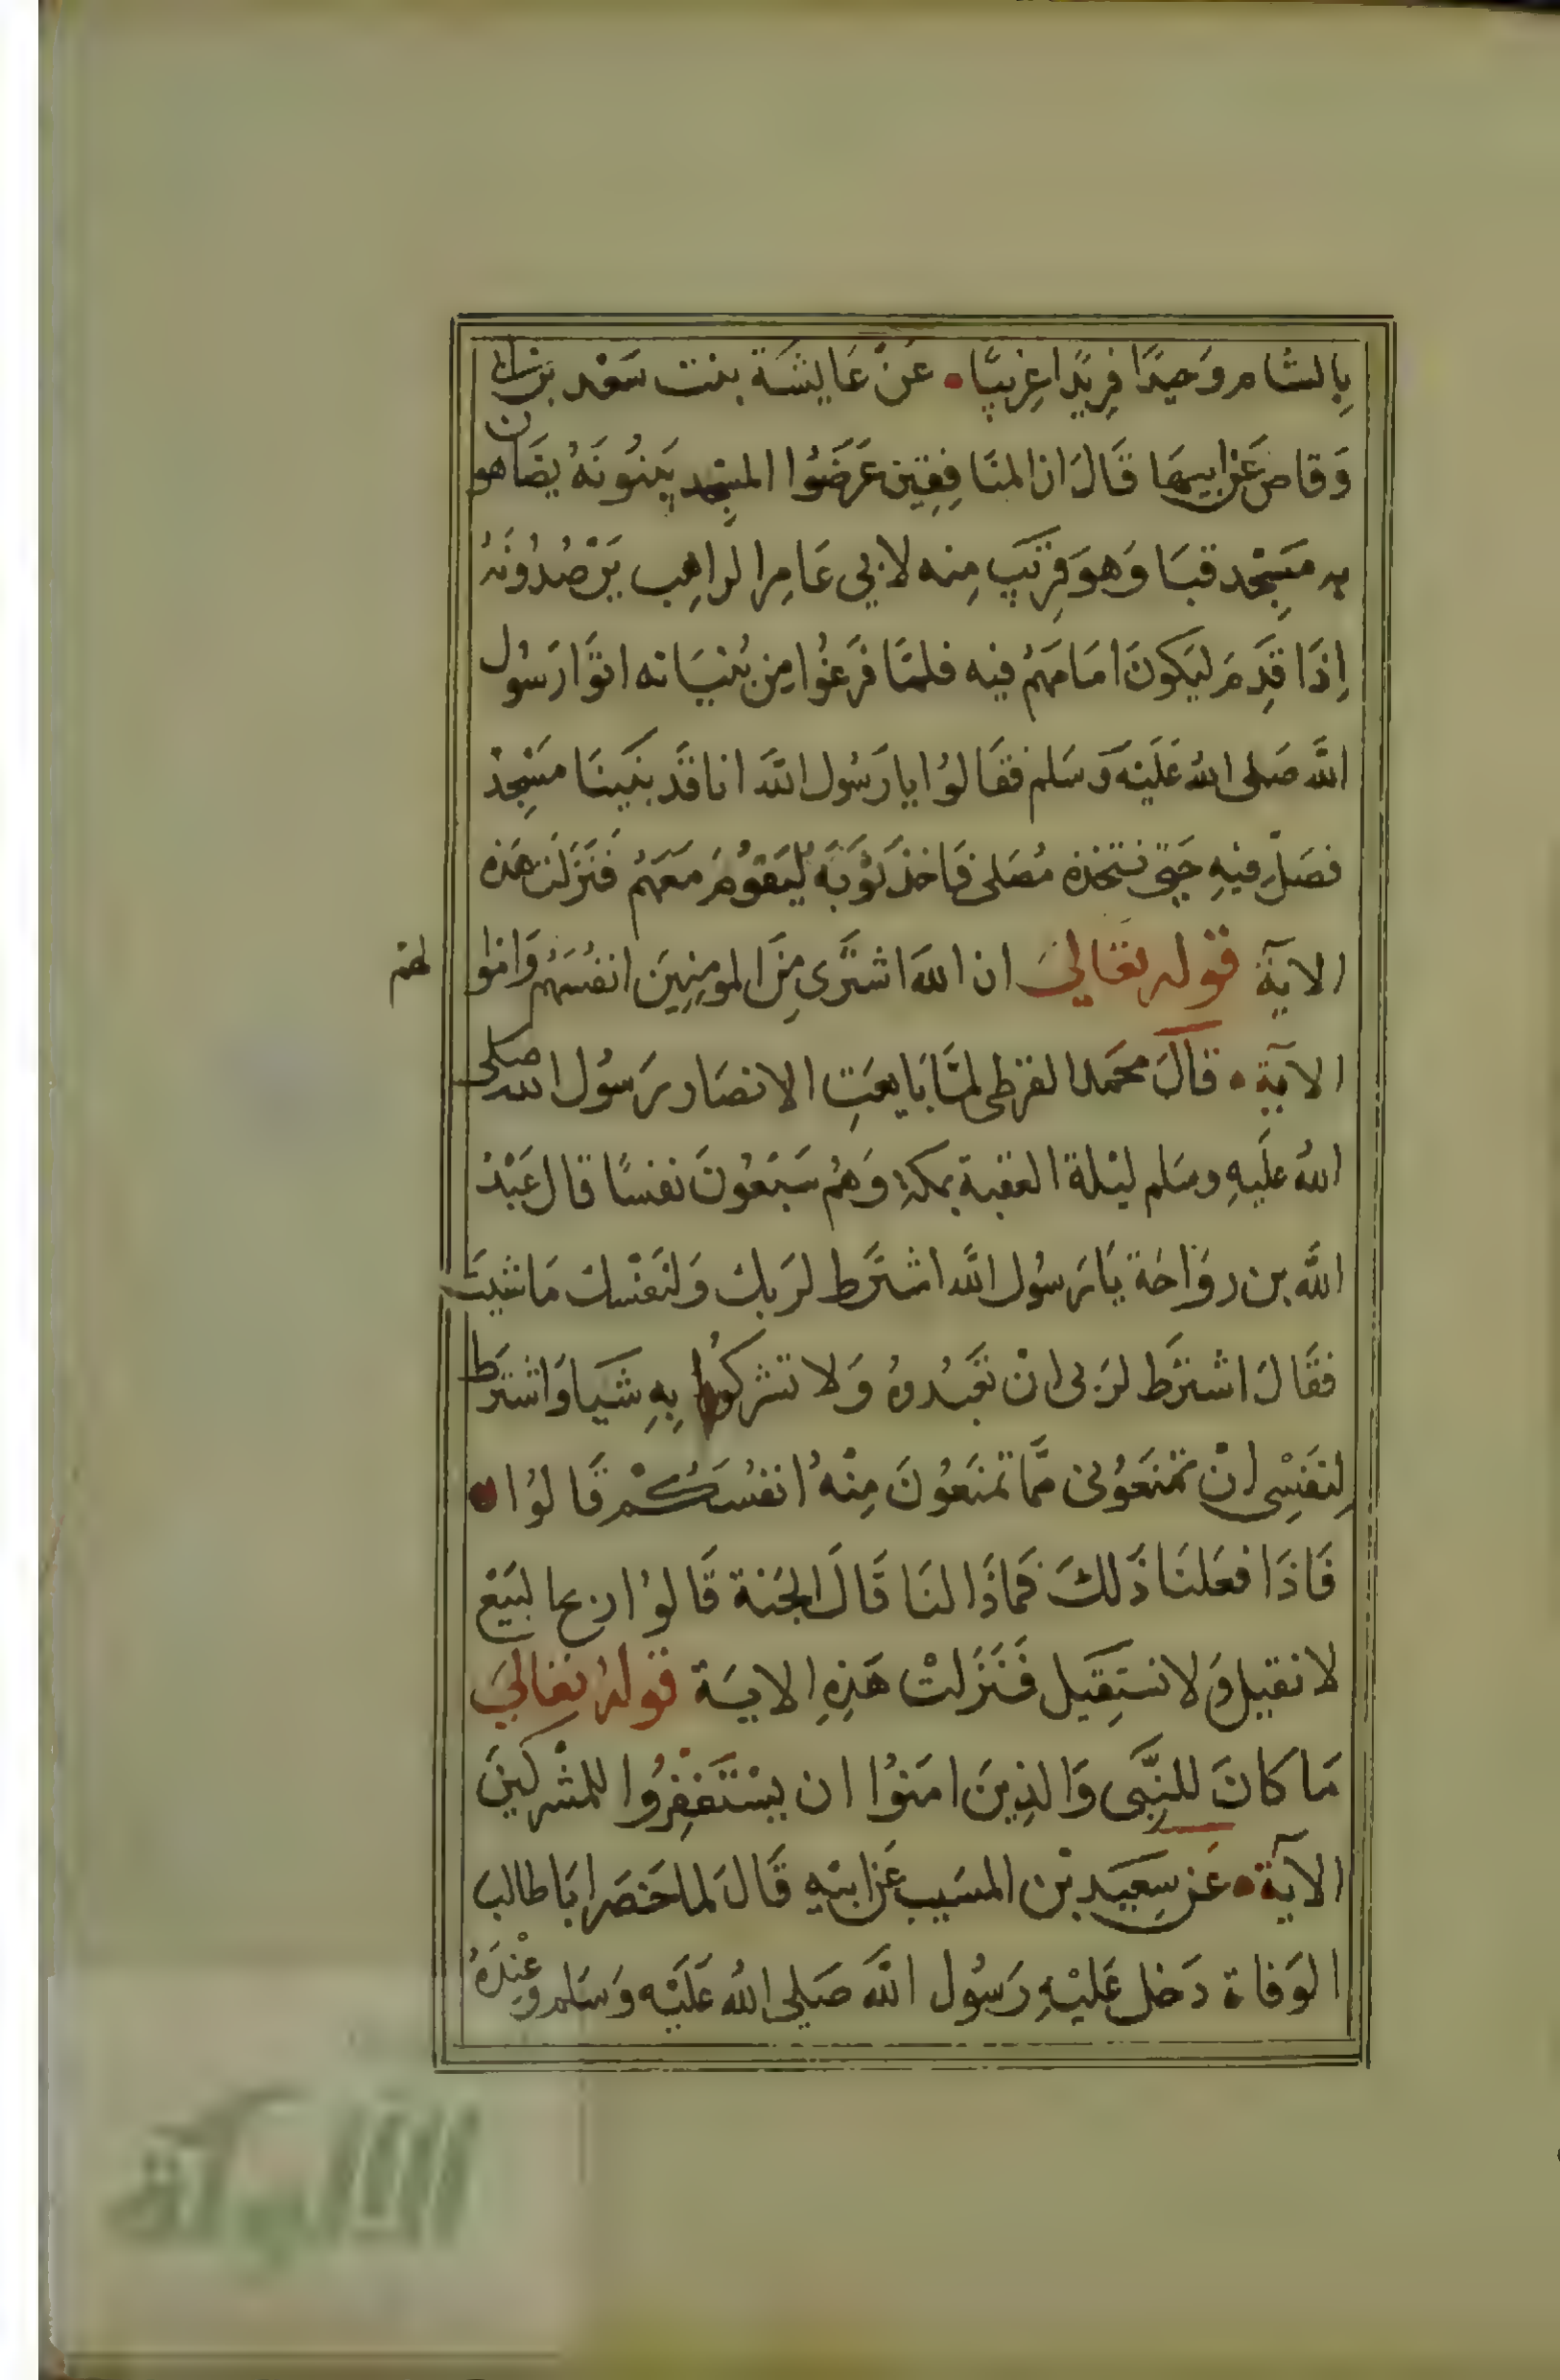 بِالشام وَحيدًا فِريدًا غِريبًا • عَن عَايشَة بنت سَعْد بن ابى
وَقاص عَن ابيها قَالَ ان المنَافِقِين عَرَضُوا المسجِد يَبنُونَهُ يضَاهون
به مَسْجِد قبَا وَهوَ قِريَب مِنه لابي عَامِر الراهِب يَرْصُدُونَهُ
اِذَا قَدِمَ لِيَكونَ امَامَهمُ فيه فلمّا فَرَغُوا مِن بُنيَانه اتَوا رَسُول
اللَّه صَلى اللهُ عَليَه وَسَلم فقَالوُا يا رَسُول اللَّه انا قَد بَنَينَا مَسْجِدْ
فصَلّ فيْهِ حَتى نتخذه مُصَلى فَاخذ ثَوْبَهُ ليَقوُمَ مَعَهمُ فَنَزَلَت هَذه
الآية قوله تعَالىَ ان اللهَ اشتَرَى مِنَ المومِنِينَ انفُسَهُم وَاموا لهم
الآية • قالَ محمد القرظى لمَّا بَايعَتِ الانصَار رَسُول الله صَلى
اللهُ عَليهِ وسَلم ليْلة العقبة بمكة وَهُم سَبْعُونَ نفسًا قال عَبْدُ
اللَّه بن روَاحَة يَا رَسُول اللَّه اشتَرط لرَبك وَلنَفْسك مَا شيتَ
فقَالَ اشترَط لرَبى انْ تعَبدُوهُ وَلا تشركُوا بِهِ شَيا وَاشترَط
لِنَفسِى انْ تمنَعُونى ممَّا تمنَعُونَ مِنْهُ انفُسَكُمْ قَالوُا •
فَاذَا فعَلنَا ذَلكَ فَماذَا لنَا قَالَ الجَنة قَالوُا ربحا لبَيْع
لا نقيل وَلا نستَقِيل فَنَزَلتْ هَذِهِ الايَة قوله تعَالىَ
مَا كَانَ للنِبَّى وَالذِينَ امَنوُا ان يسْتَغفِرُوا للمشْركِينَ
الآية • عَن سَعِيَد بْن المسَيب عَن ابيْهِ قَالَ لما حَضَر ابَا طالبَ
الوَفاة دَخل عَليْهِ رَسُول اللَّه صَلى اللهُ عَليْه وَسَلم وَعِنْدَهُ